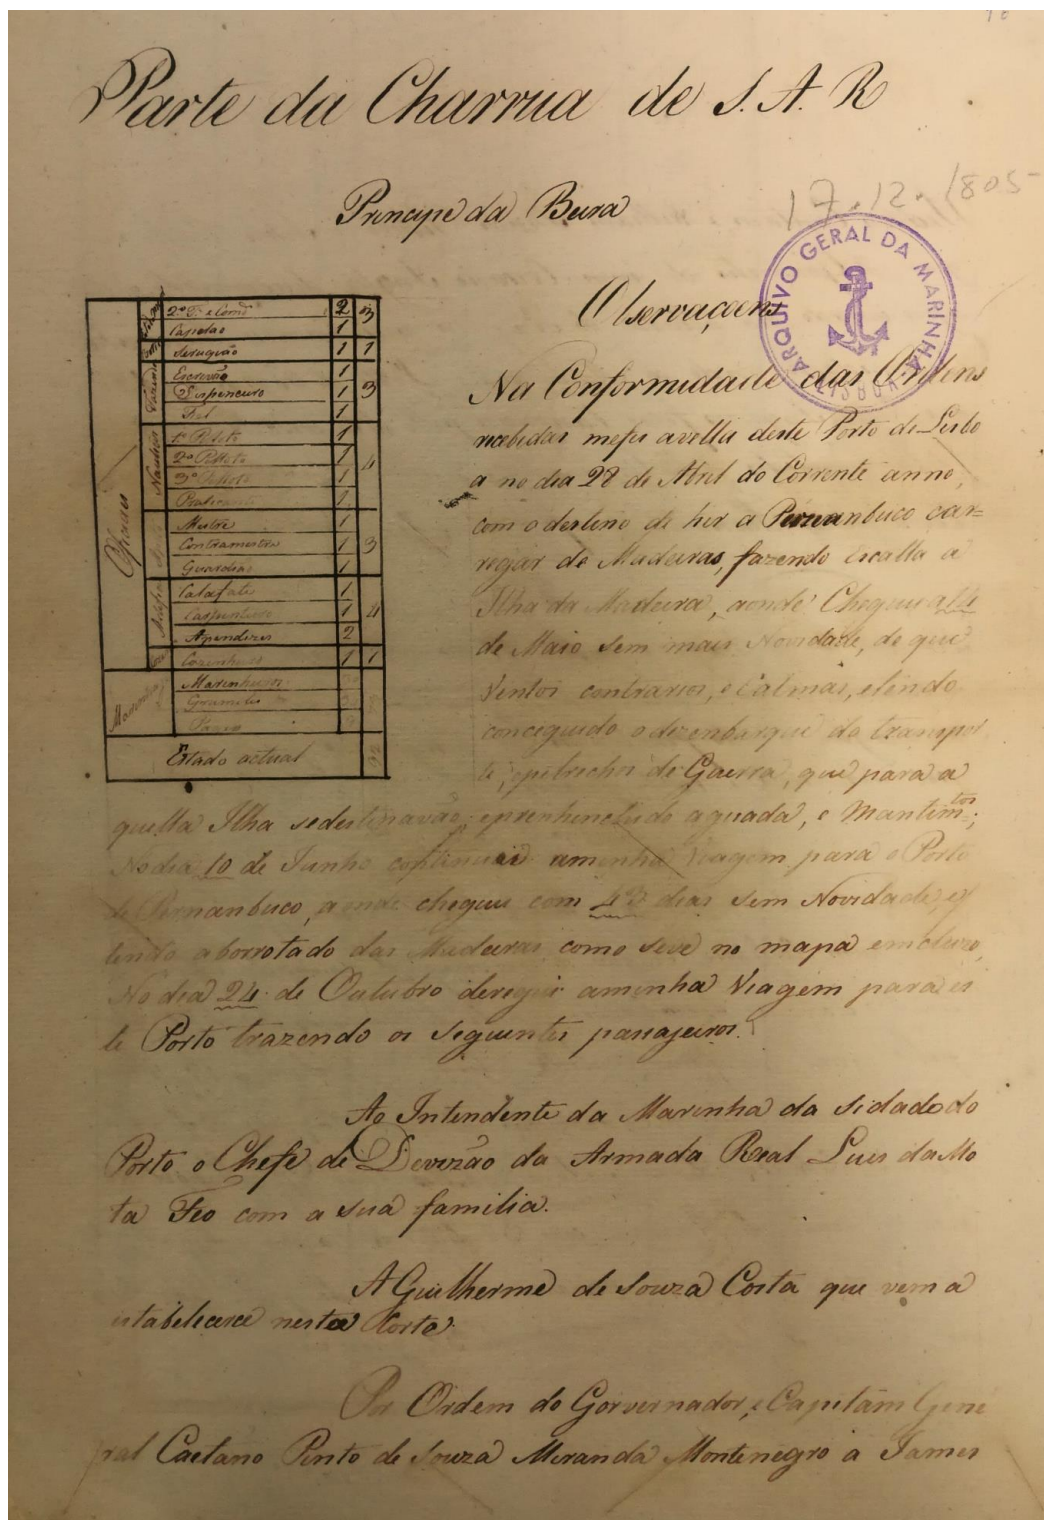 Parte da Charrua de S. A. R
Principe da Beira
17.12.1805
ARQUIVO GERAL DA MARINHA
Observaçoens
2os Tes e Comde 2 3
Capelão 1
Serugião 1 1
Escrivão 1 3
Dispenceiro 1
Fiel 1
1º Piloto 1 4
2º Piloto 1
3º Piloto 1
Praticante 1
Mestre 1 3
Contramestre 1
Guardião 1
Calafate 1 4
Carpinteiro 1
Apendizes 2
Cozinheiro 1 1
Marinheiros
Grumetes
Pagens
Estado actual
Officiaes
Nautica
Na Conformidade das Ordens
recebidas mefis avella deste Porto de Lisbo
a no dia 28 de Abril do Corrente anno,
com o destino de hir a Pernanbuco car=
regar de Madeiras, fazendo escalla a
Ilha da Madeira, aonde Cheguei a 14
de Maio sem mais Novidade, de que
Ventos contrarios, e Calmas, e tendo
conceguido o dezenbarque do transpor
te, epetrechos de Guerra, que para a
quella Ilha sedestinavão; eprenhenchido aguada, e Mantimtos;
No dia 10 de Junho continuei aminha Viagem para o Porto
de Pernanbuco, aonde cheguei com 43 dias sem Novidade, e
tendo aborrotado das Madeiras como seve no mapa emcluzo,
No dia 24 de Outubro deregui aminha Viagem para es
te Porto trazendo os seguintes passajeiros.
Ao Intendente da Marinha da Sidade do
Porto o Chefe de Devizão da Armada Real Luis da Mo
ta Feo com a sua familia.
A Guilherme de Souza Costa que vem a
estabelecerce nesta Corte.
Por Ordem do Gorvernador, e Capitam Gene
ral Caetano Pinto de Souza Miranda Montenegro a James